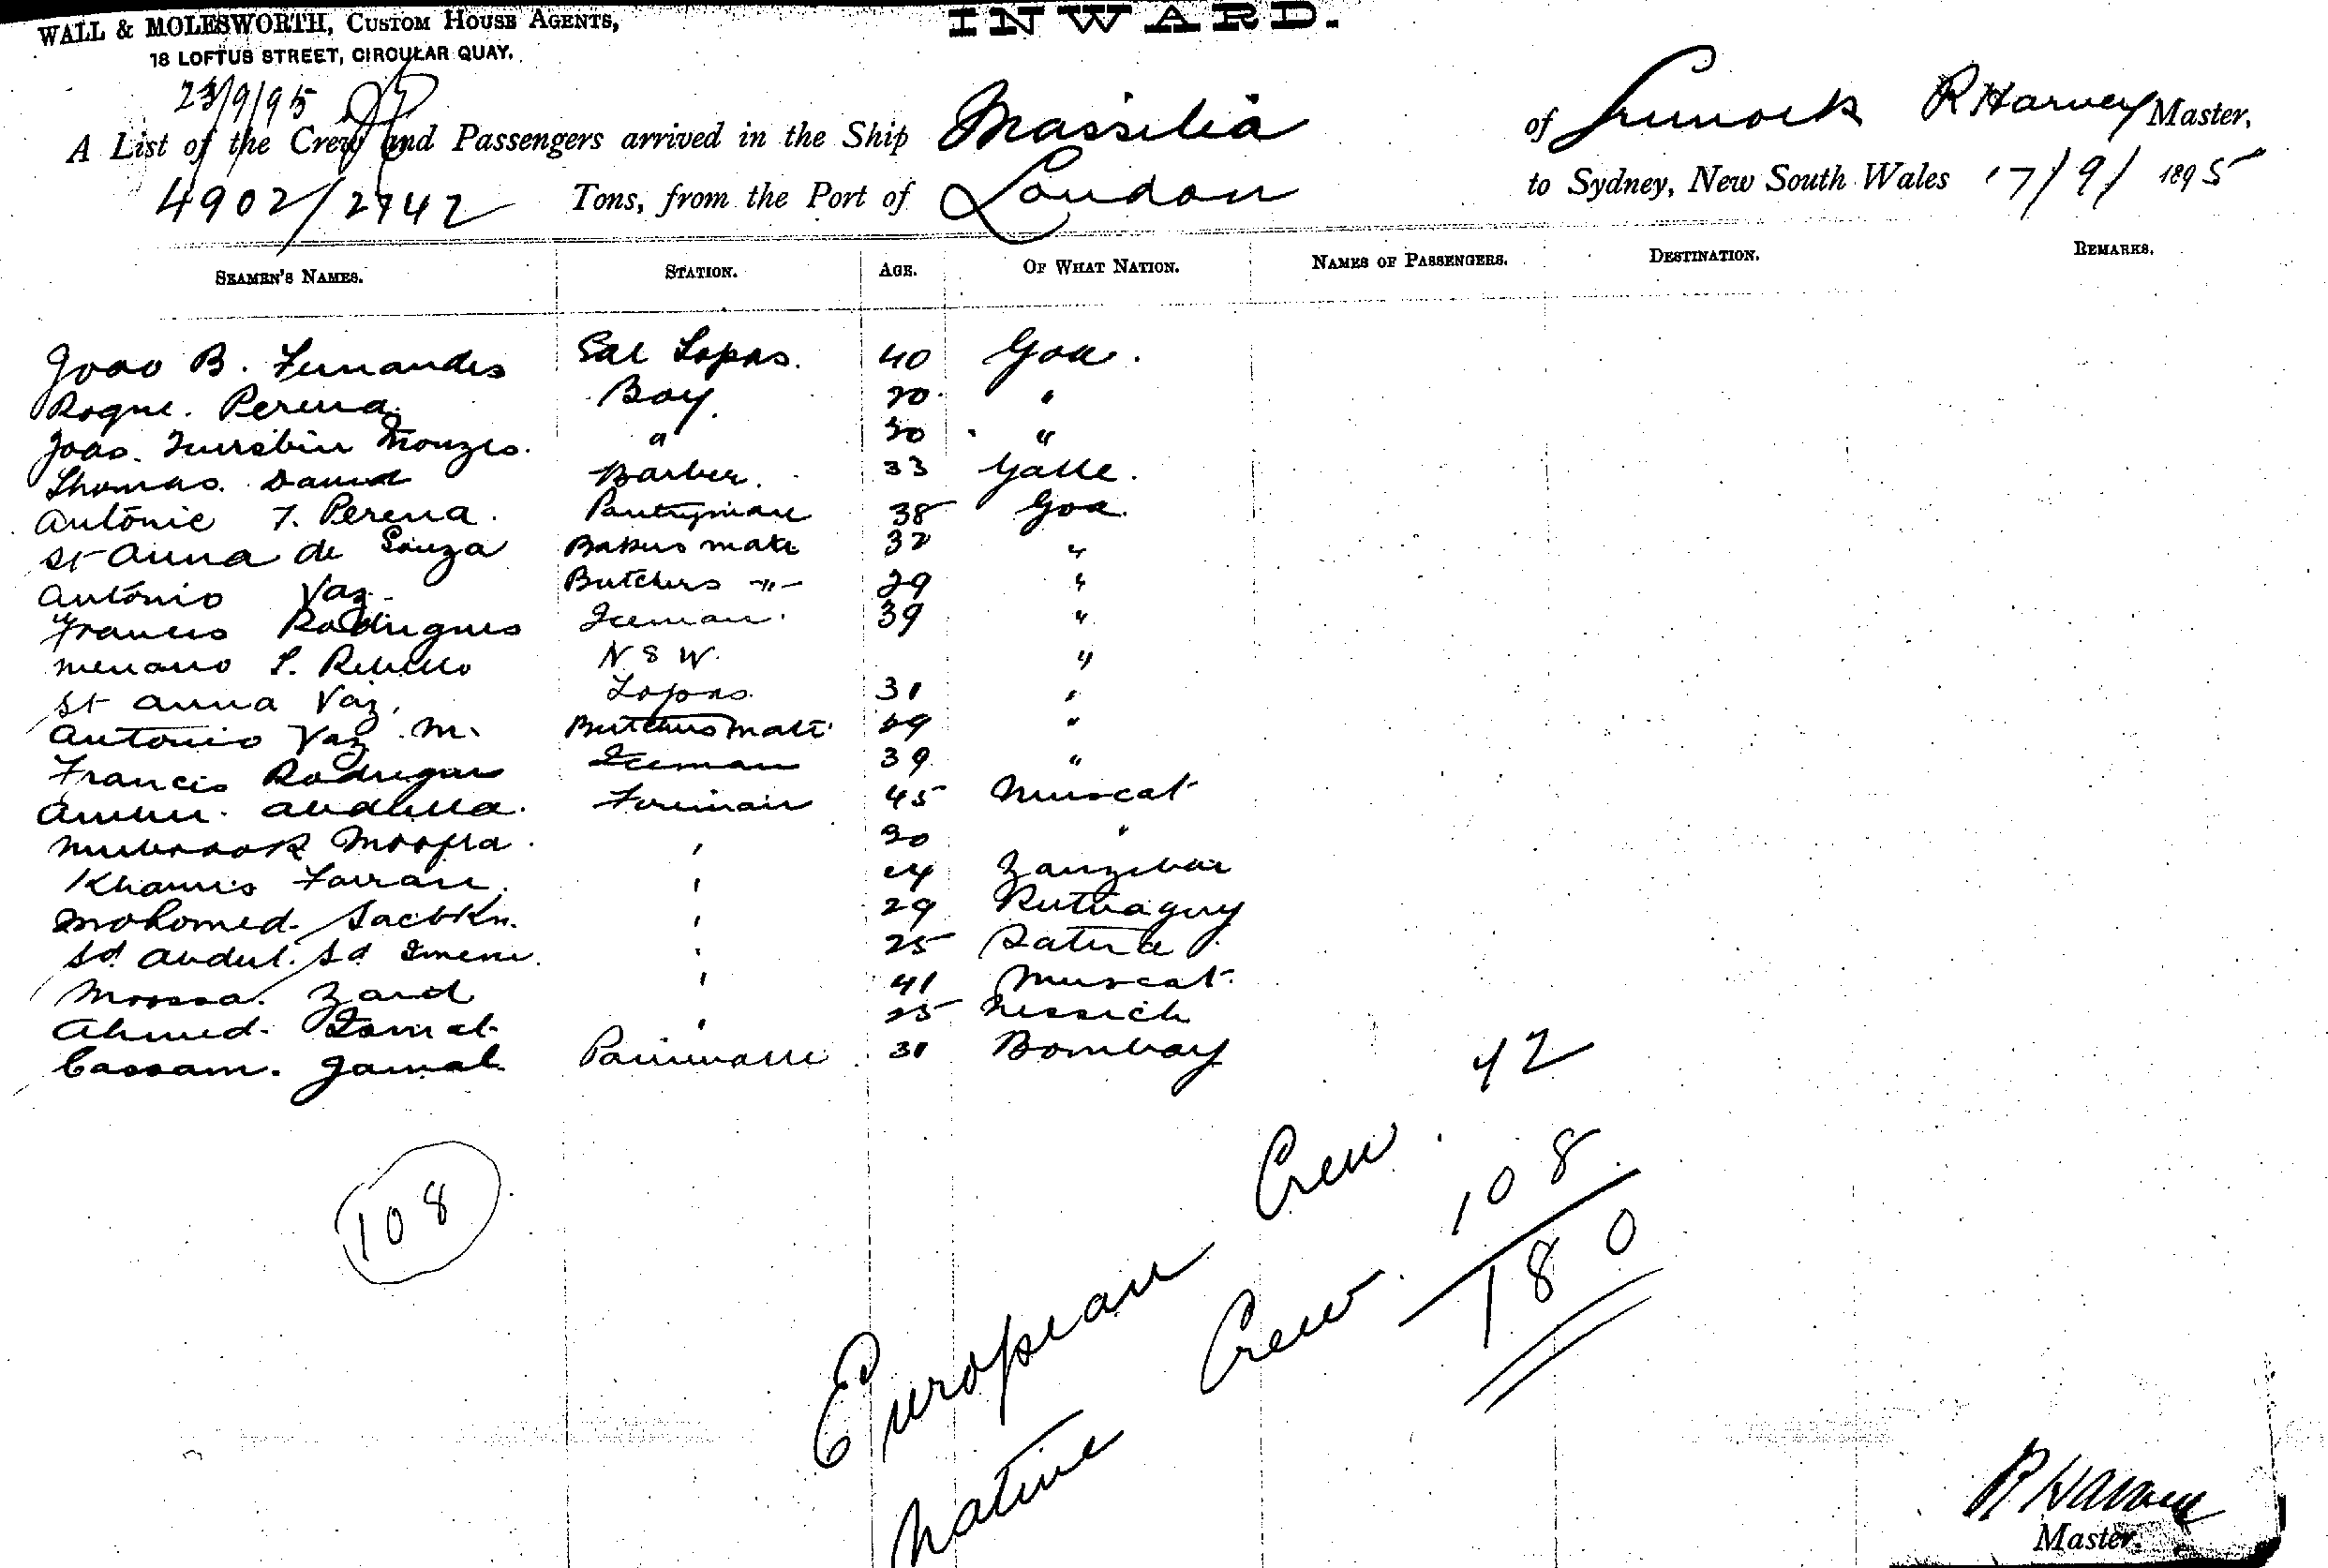 WALL & MOLESWORTH, CUSTOM HOUSE AGENTS,
18 LOFTUS STREET, CIRCULAR QUAY.
INWARD.
23/9/95
A List of the Crew and Passengers arrived in the Ship Massilia of Greenock R Harvey Master,
4902/2742 Tons, from the Port of London to Sydney, New South Wales 17/9/1895
SEAMEN'S NAMES. STATION. AGE. OF WHAT NATION. NAMES OF PASSENGERS. DESTINATION. REMARKS.
Joao B. Fernandes Sal Topas. 40 Goa.
Roque. Pereira. Boy. 20 "
Joao. Menzes. " 30 "
Thomas. David Barber. 33 Galle.
Antonio F. Pereira. Pantryman 38 Goa.
St Anna de Souza Bakers mate 32 "
Antonio Vaz. Butchers -"- 29 "
Francis Rodrigues Iceman. 39 "
S. Rebello N S W. "
St Anna Vaz. Topas. 31 "
Antonio Vaz M. Butchers mate 29 "
Francis Rodrigues Iceman 39 "
Abdulla. Fireman 45 Muscat
Mubarook Moofta. " 30 "
Khamis Farran. " 24 Zanzibar
Mohomed. " 29
Sd. Abdul. Sd " 25
Moossa. Zaid " 41 Muscat.
Ahmed. " 25
Cassam. Jamal 31 Bombay
108
European Crew. 42
Native Crew. 108
180
R Harvey
Master.